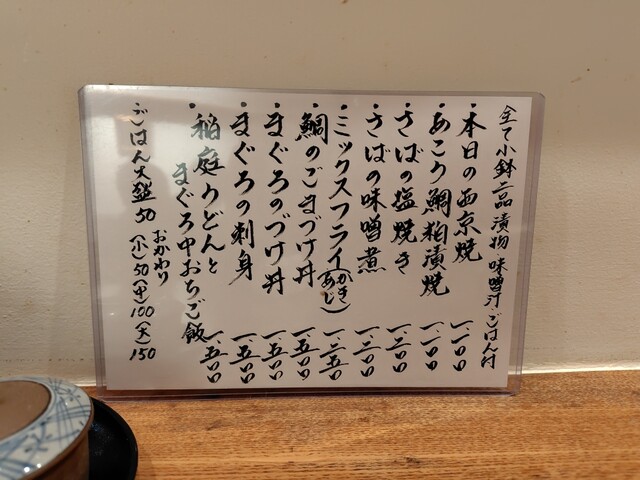 全て小鉢二品 漬物・味噌汁・ごはん付
・本日の西京焼 一、一〇〇
・あこう鯛粕漬焼 一、一〇〇
・さばの塩焼き 一、二〇〇
・さばの味噌煮 一、二〇〇
・ミックスフライ(かき あじ) 一、二五〇
・鯛のごまづけ丼 一、五〇〇
・まぐろのづけ丼 一、五〇〇
・まぐろの刺身 一、五〇〇
・稲庭うどんと
まぐろ中おちご飯 一、五〇〇
・ごはん大盛 50
おかわり
(小)50 (中)100 (大)150